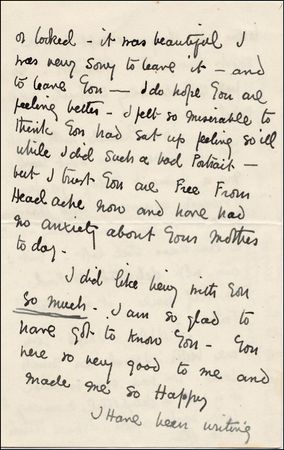 or locked - it was beautiful I
was very sorry to leave it - and
to leave you - I do hope you are
feeling better - I felt so miserable to
think you had sat up feeling so ill
while I did such a bad Portrait -
but I trust you are Free From
Headache now and have had
no anxiety about your mother
to day.
I did like being with you
so much. I am so glad to
have got to know you - you
were so very good to me and
made me so Happy
I Have been writing